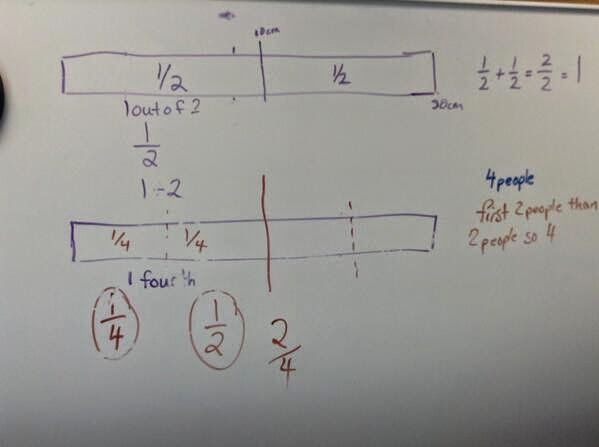 10cm
1/2 1/2
1/2 + 1/2 = 2/2 = 1
20cm
1 out of 2
1/2
1-2
4 people
first 2 people than
2 people so 4
1/4 1/4
1 fourth
1/4 1/2 2/4